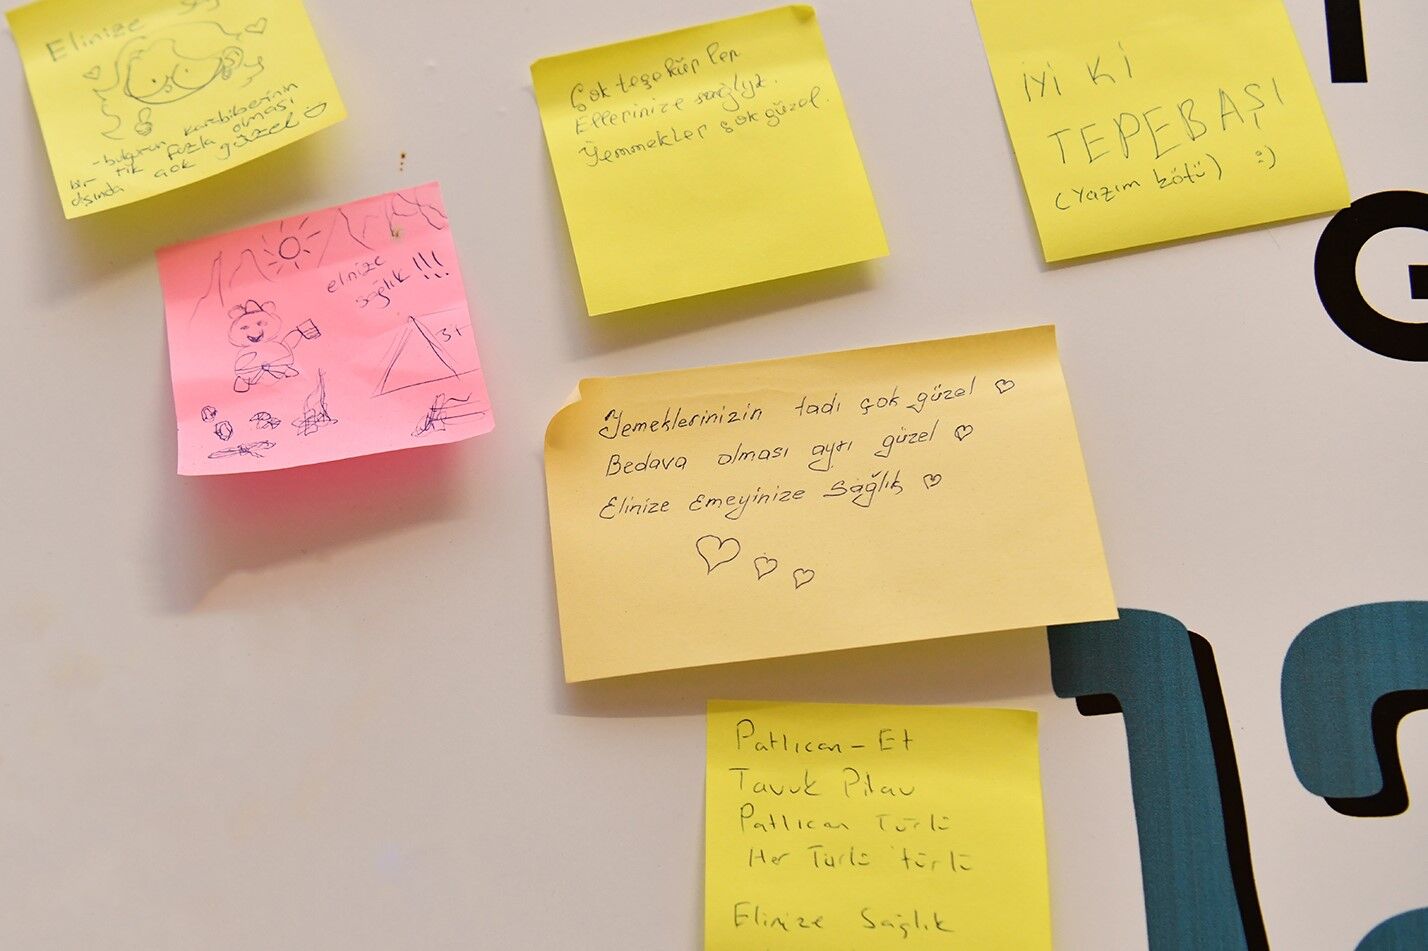 Elinize
- bulgurun karabiberinin
bir tık fazla olması
dışında çok güzel
elnize
sağlık !!!
Çok teşeküp ler
Ellerinize sağlık.
Yemmekler çok güzel.
İYİ Kİ
TEPEBAŞI
(Yazım kötü) :)
Yemeklerinizin tadı çok güzel ♡
Bedava olması ayrı güzel ♡
Elinize Emeyinize Sağlık ♡
Patlıcan - Et
Tavuk Pilav
Patlıcan Türlü
Her Türlü türlü
Elinize Sağlık
G
12